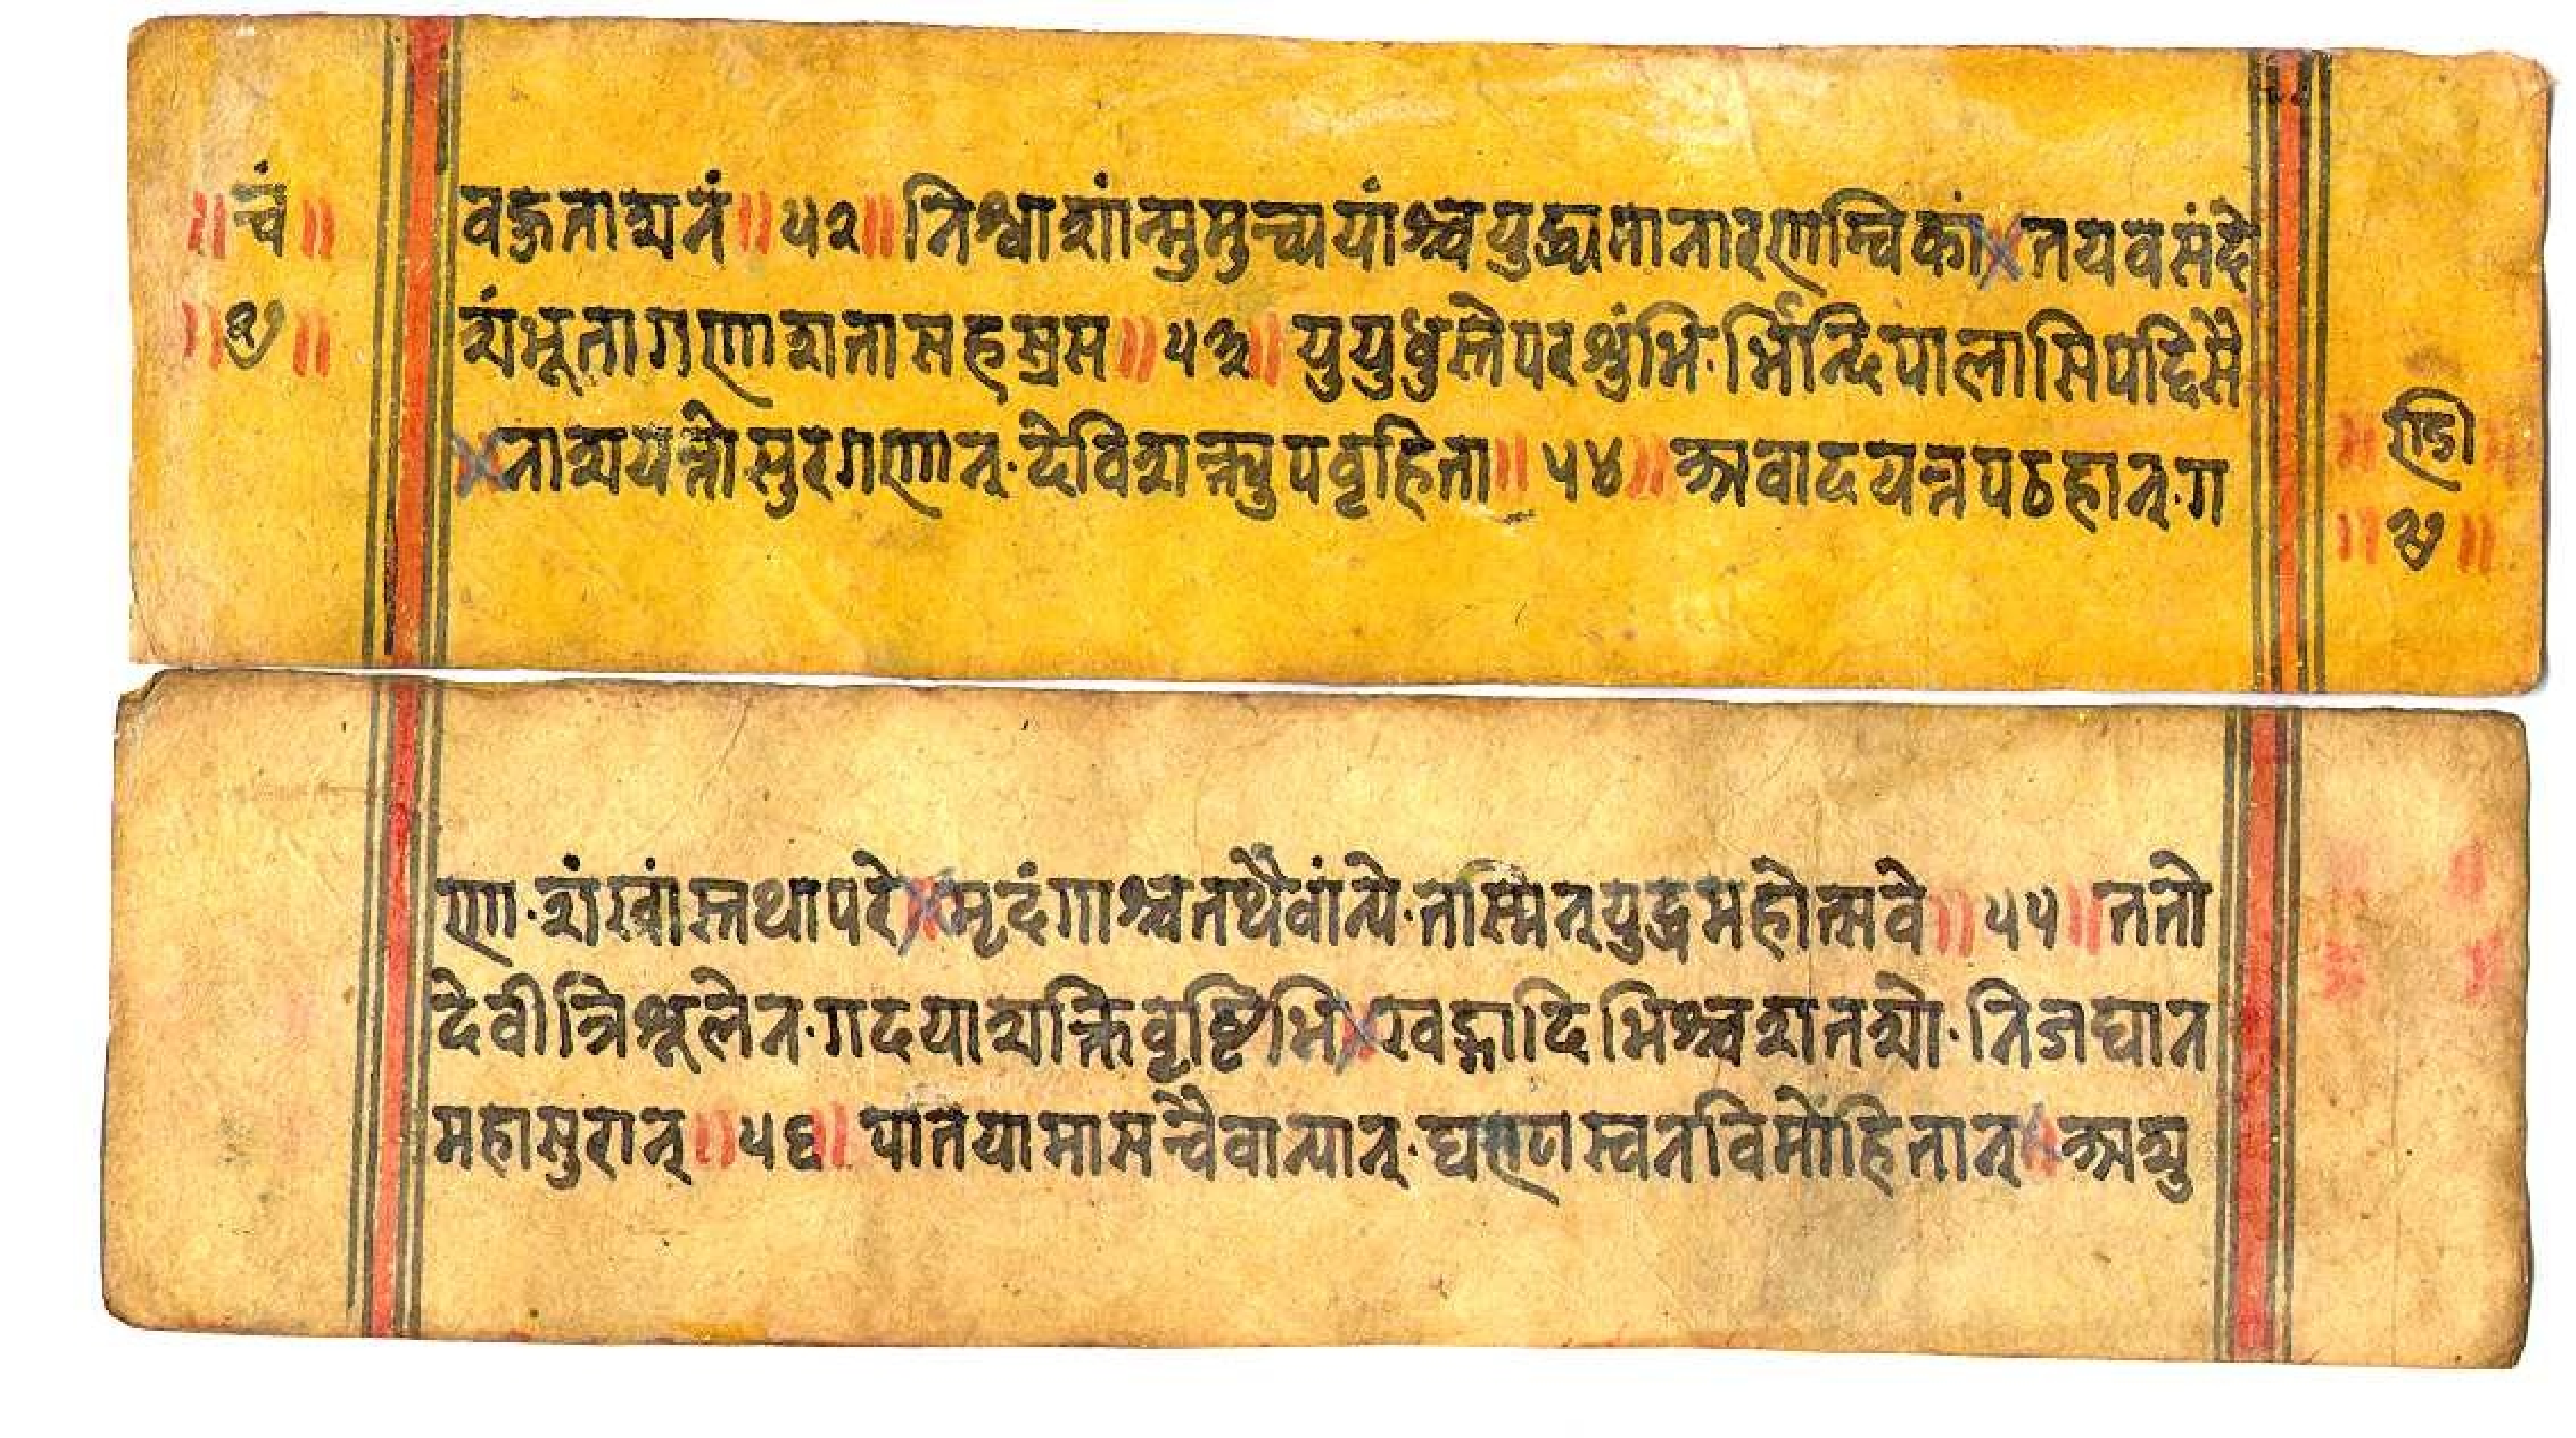 ॥ चं ॥
॥ ९ ॥
वह्नुताशनं ॥ ५२ ॥ निश्वाशांन्मुमुच्ययांश्चयुद्ध्यमानारणाम्विकां तयवसंदे
शंभूतागणाशतासहस्रस ॥ ५३ ॥ युयुधुस्तेपरश्रुंभि·र्भिन्दिपालासिपट्टिसै
नाशयन्तोसुरगणान्·देविशक्त्युपवृहिता ॥ ५४ ॥ अवादयन्तपठहान्·ग
ण्डी
॥ ९ ॥
णा·शंखांस्तथापरे मृदंगाश्चतथैवांन्ये·तस्मिन्युद्धमहोत्सवे ॥ ५५ ॥ ततो
देवीत्रिश्रूलेन·गदयाशक्तिवृष्टिभि खड्गादिभिश्चशतशो·निजघान
महासुरान् ॥ ५६ ॥ पातयामासचैवान्यान्·घण्टास्वनविमोहितान् अशु